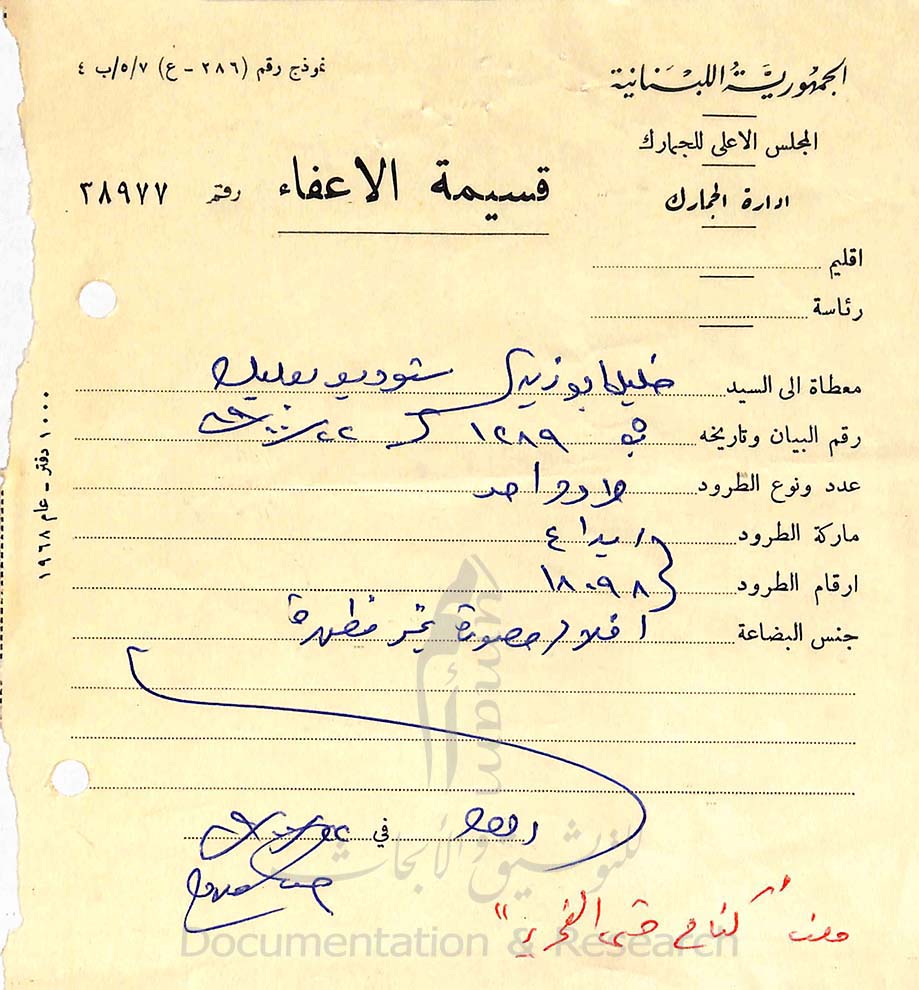 الجمهورية اللبنانية
نموذج رقم (٢٨٦ - ع) ٥/٧/ب ٤
المجلس الاعلى للجمارك
ادارة الجمارك
قسيمة الاعفاء رقم ٣٨٩٧٧
اقليم
رئاسة
معطاة الى السيد ستوديو بعلبك
رقم البيان وتاريخه ١٢٨٩
عدد ونوع الطرود واحد
ماركة الطرود
ارقام الطرود ١٨٠٩٨
جنس البضاعة افلام مصورة غير مظهرة
في
ملف "كفاح حتى التحرير"
١٠٠٠ دفتر - عام ١٩٦٨
للتوثيق والأبحاث
Documentation & Research
umam